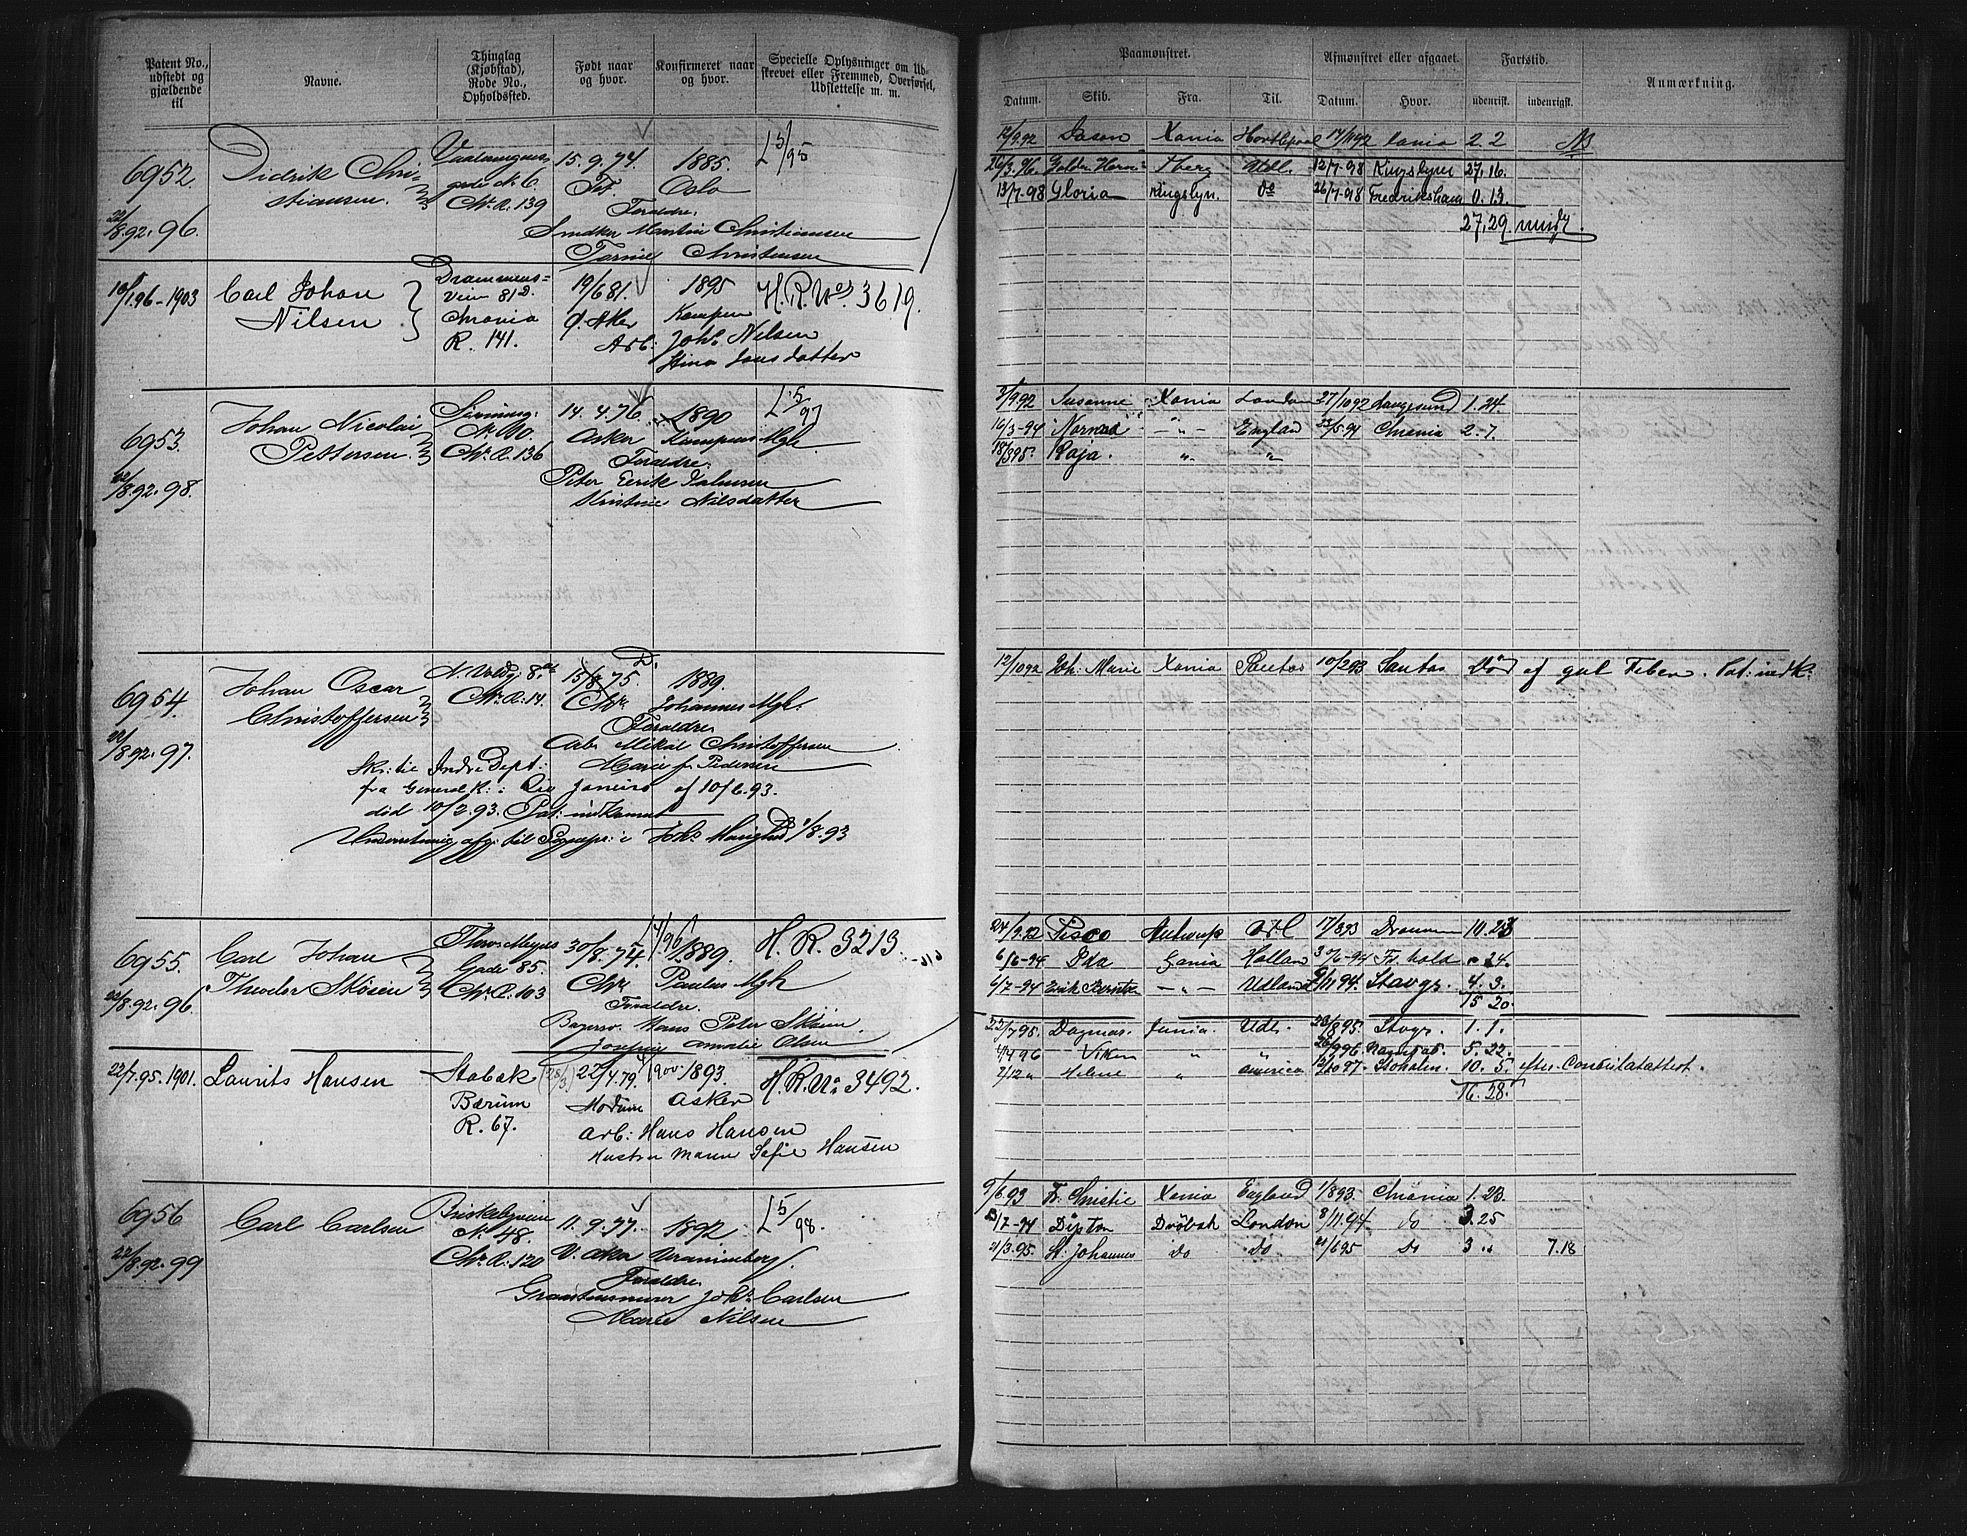 Patent No., udstedt og gjældende til
Navne.
Thinglag (Kjøbstad), Rode No., Opholdssted.
Født naar og hvor.
Konfirmeret naar og hvor.
Specielle Oplysninger om Udskrevet eller Fremmed, Overførsel, Udslettelse m. m.
6952.
22/8.92. 96.
Didrik Christiansen.
gade No 6.
Chr. R. 139
15. 9. 74.
1885.
Oslo
L 5/95
Foraldre:
Smdkr Martin Christiansen
Christensen
10/1.96-1903
Carl Johan
Nilsen
Drammens=
Veien 81 d.
Chrania
R. 141.
19/6 81.
Ø. Aker
1895
Kampen
H. R. No 3619.
Arb: Joh. Nilsen
Stina Jonsdatter
6953.
22/8.92. 98.
Johan Nicolai
Pettersen
Chr. R. 136
14. 4. 76.
Asker
1890
Kampens Mgh.
L 5/97
Foraldre:
Peter Eerik
Kristine Nilsdatter
6954.
22/8.92. 97.
Johan Oscar
Christoffersen
N. Voldg. 8
Chr. R. 14.
15/8 75.
Chr.
D.
1889.
Johannes Mgh.
Foraldre
Arb. Mikal Christoffersen
Marie f. Pedersen
Skr. til Indre Dept:
fra Generalk.: Rio Janeiro af 10/6.93.
død 10/2.93. Pat: indkommet
Underretning afg. til Sogpr. i Joh. Menighed 1/8.93
6955.
22/8.92. 96.
Carl Johan
Theodor Skøien
Thorv. Meyers
Gade 85.
Chr. R. 103
30/8. 74.
Chr.
1/4/96
1889.
Paulus Mgh
H. R. 3213.
Foraldre.
Bagersv. Hans Peter Skøien.
Josefine Amalie Olsen
22/7.95. 1901.
Laurits Hansen
Stabæk
Bærum
R. 67.
22/4.79.
Modum
1893.
Asker
H. R. No: 3492.
Arb: Hans Hansen
Hustru Maren Sofie Hansen
6956
22/8.92. 99
Carl Carlsen
Briskebyveien
No 48.
Chr. R. 120
11. 9. 77.
V. Aker
1892
Uranienborg.
L 5/98.
Foraldre
Joh. Carlsen
Marie Nilsen
Paamønstret.
Afmønstret eller afgaaet.
Fartstid.
Anmærkning.
Datum. Skib. Fra. Til. Datum. Hvor. udenrigst. indenrigst.
12/9.92 Jason Xania Hartlepool 17/11 92 2. 2
26/3.96. Golden Horn Udl. 12/7-98 Kingslynn 27. 16.
13/7-98 Gloria Kingslyn. do 26/7-98 Fredrikshavn 0. 13.
27. 29.
3/9.92 Susanne Xania London 27/10 92 Langesund 1. 24.
16/3-94 — " — England 25/5-94 Chrania 2. 7.
18/3 95. Raja. " "
12/10 92 Joh. Marie Xania Santos 10/2 93 Santos Død af gul Feber. Pat: indk.
24/9.92 Pisco Antwerp 17/8 93 Drammen 10. 23
6/6-94 Ida Xania Holland 6-94 Fr.hald 24.
6/7-94 Erik — " — Udland 9/11 94. Stavgr. 4. 3.
15 20.
22/7 95. Dagmar. Xania. Udl. 23/8 95. Stavgr. 1. 1.
4/4 96 Viken " " 26/9 96 5. 22.
2/12 " Helene " America 13/10 97. Stoholm. 10. 5. efter Consulatattest.
16. 28.
9/6 93 Fr. Christie Xania England 1/8 93. Chrania 1. 23.
/7-94 Dipton Drøbak London 8/11. 94 do 3. 25
21/3.95. St. Johannes Do Do. 21/6 95 Do 3 " 7. 18